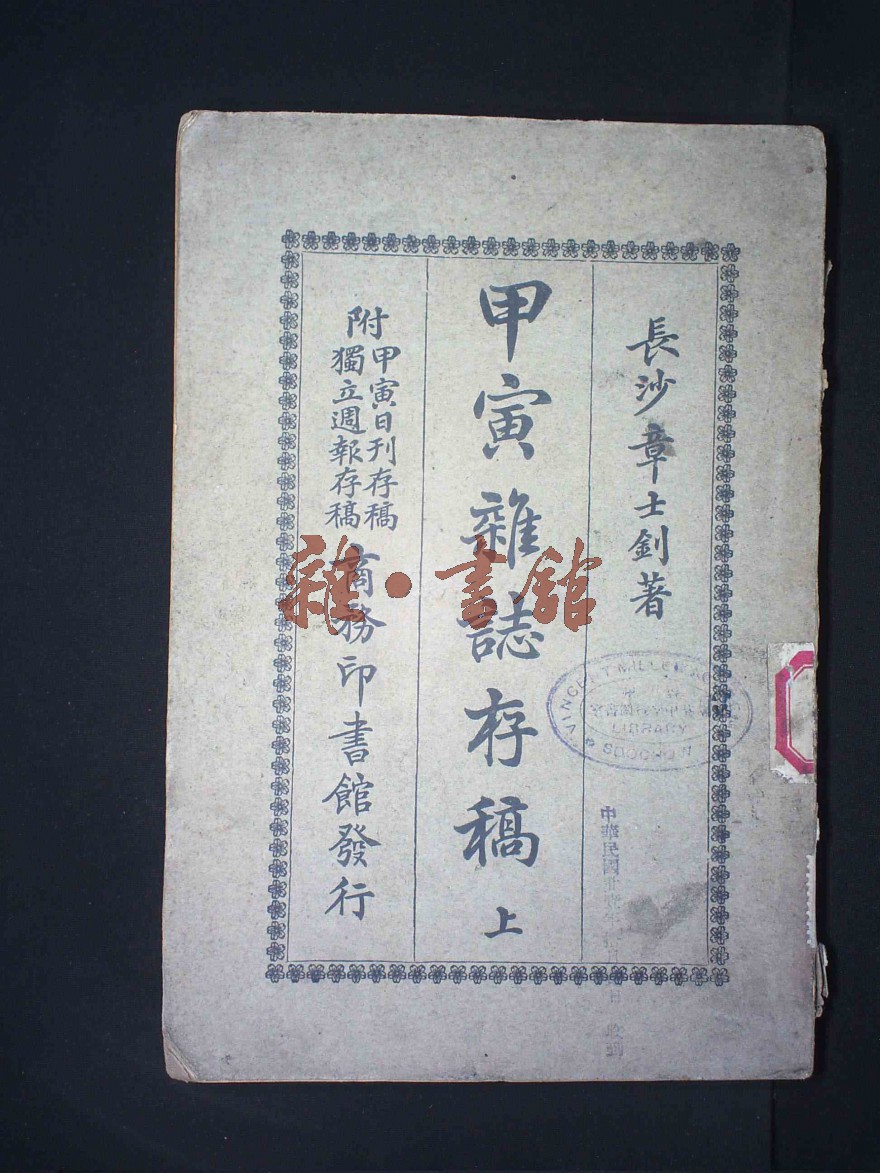 長沙章士釗著
甲寅雜誌存稿 上
附
甲寅日刊存稿
獨立週報存稿
商務印書館發行
雜·書館
LIBRARY
SOOCHOW
中華民國